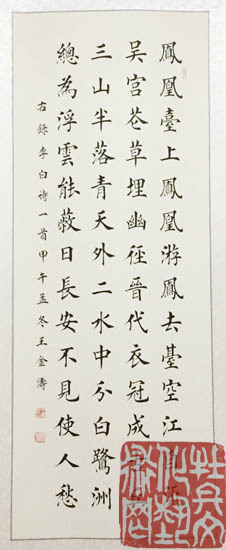 鳳凰臺上鳳凰游鳳去臺空江
吴宫花草埋幽徑晉代衣冠成
三山半落青天外二水中分白鷺洲
總為浮雲能蔽日長安不見使人愁
右錄李白诗一首甲午孟冬王金濤